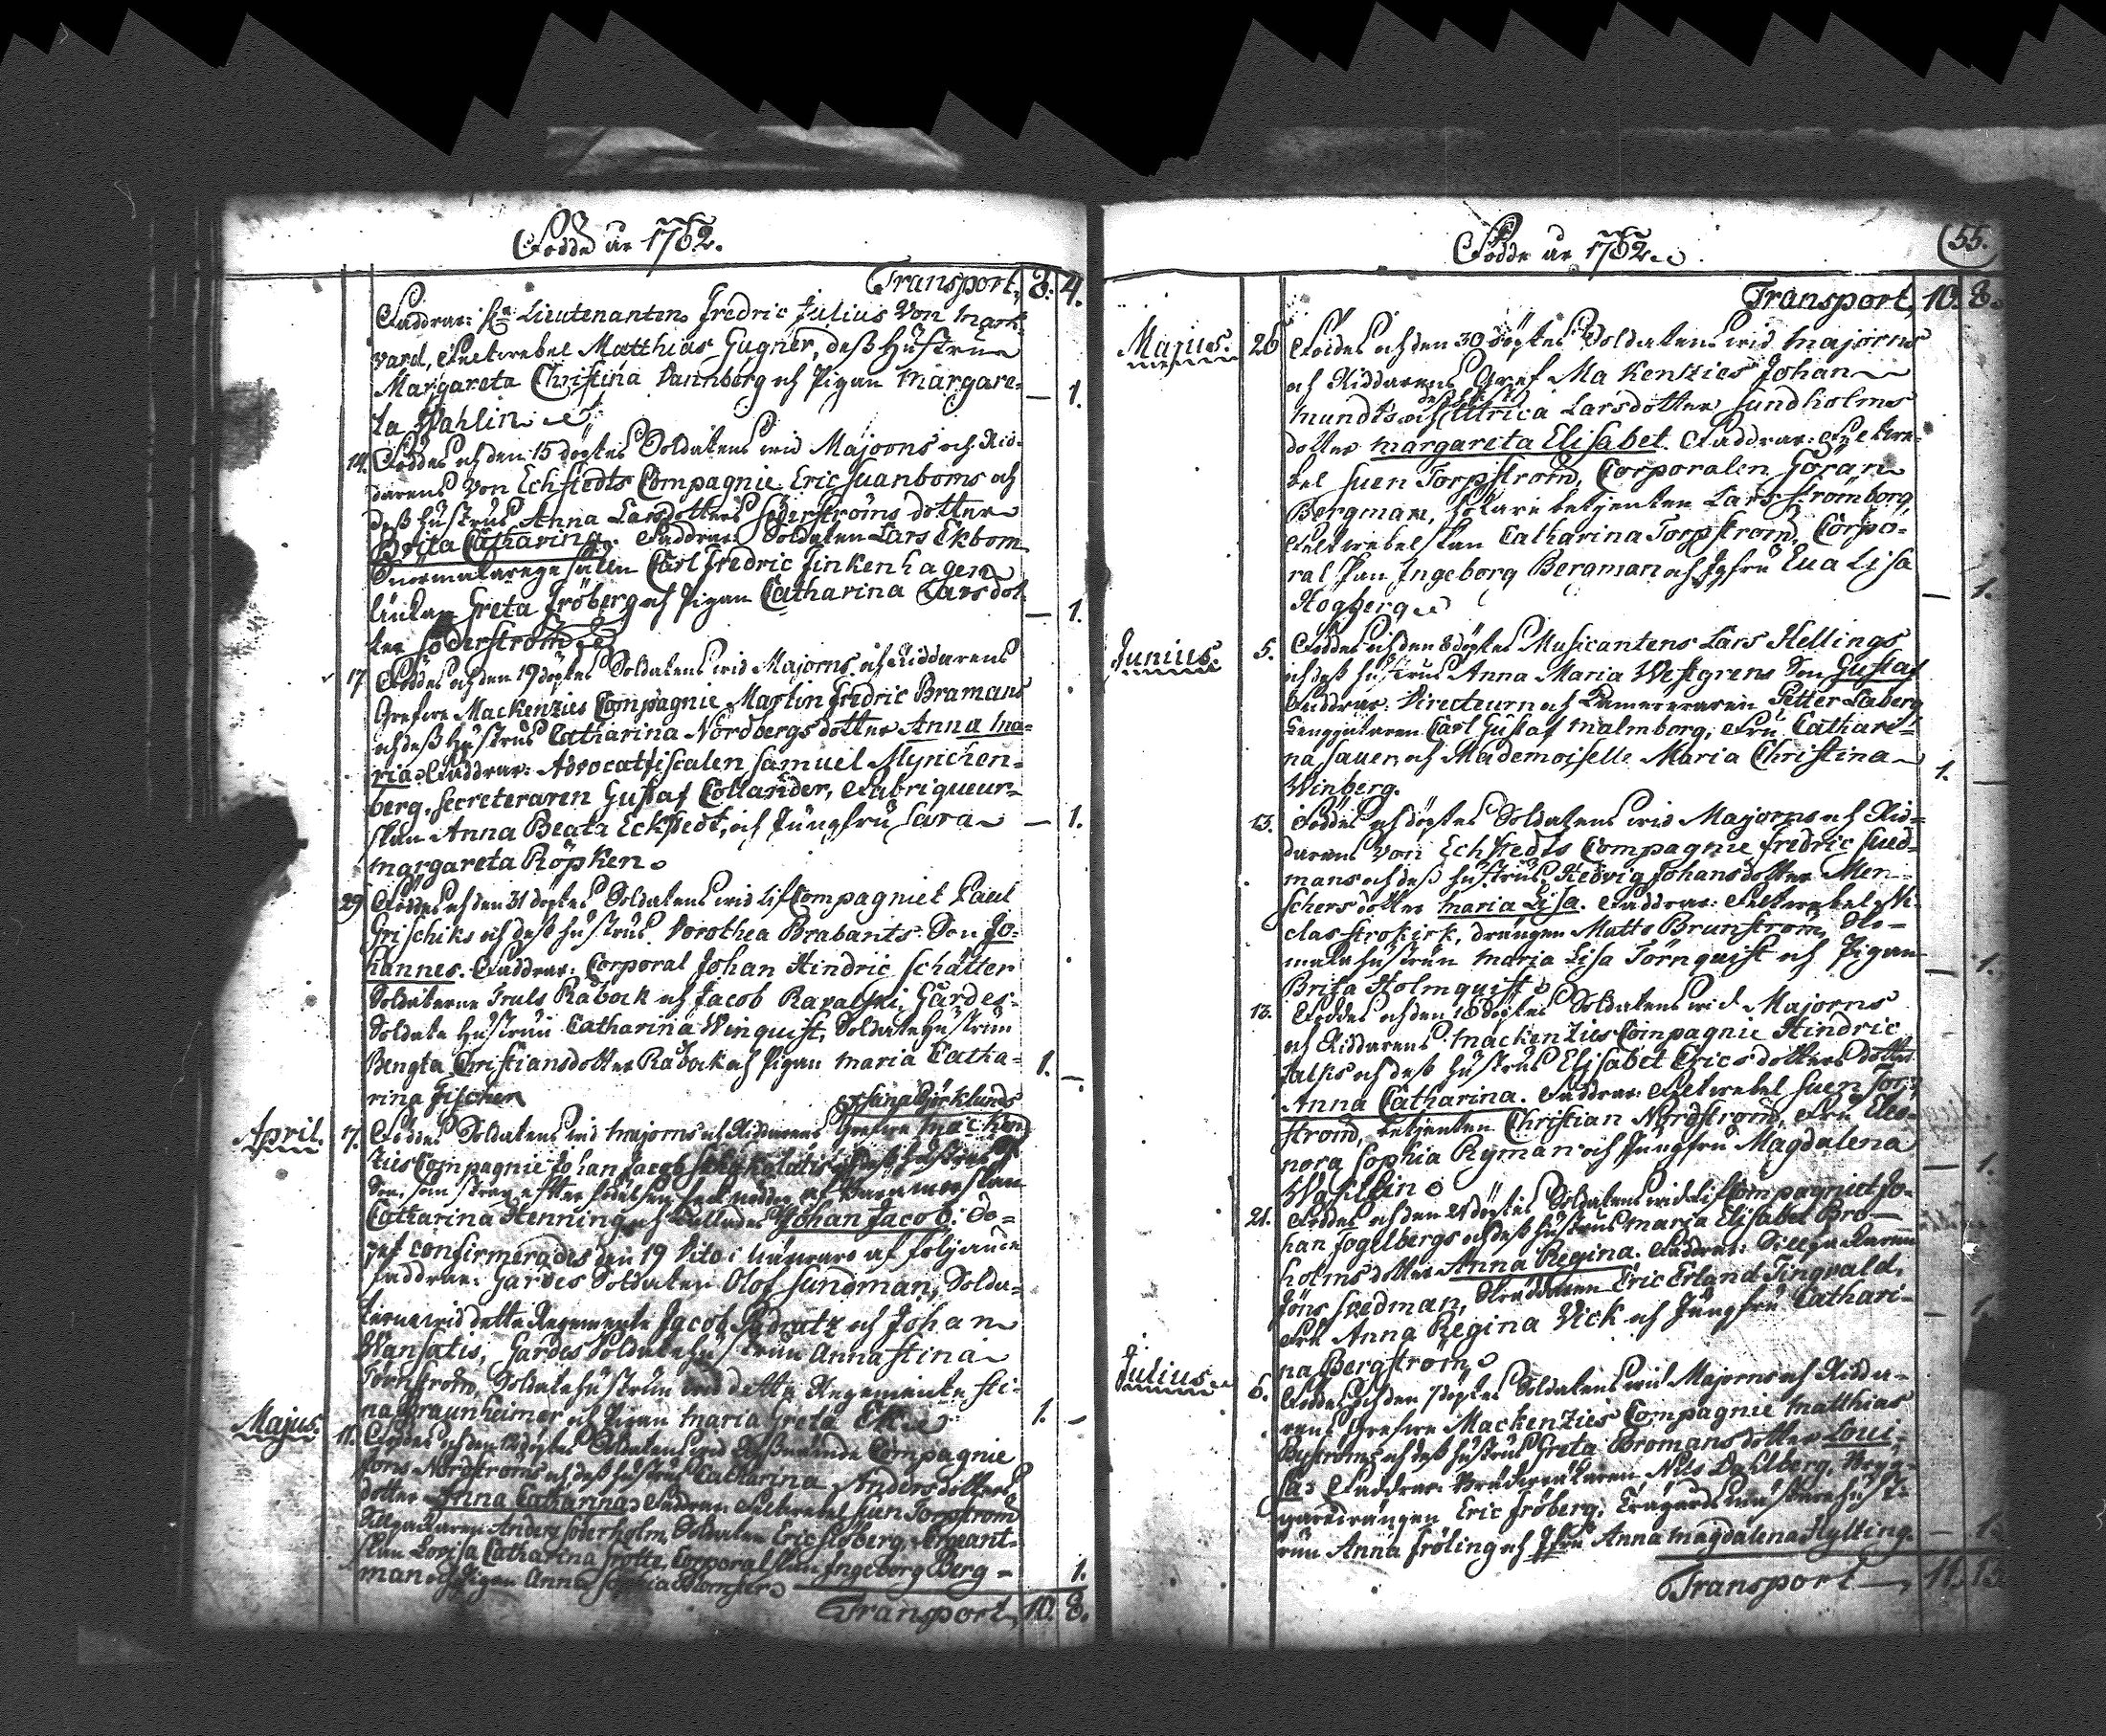 Födde år 1762.
Transport, 8. 4.
Faddrar: Lieutenanten Fredric Julius von Mark-
vard, Feltwebel Matthias Gugner, deß Hustru
Margareta Christina Dannborg och Pigan Margare-
ta Wahlin — 1.
14. Föddes och den 15 döptes Soldatens wid Majorns och Rid-
darens von Echstedts Compagnie Eric Suanboms och
deß hustrus Anna Larsdotters Söderströms dotter
Brita Catharina. Faddrar: Soldaten Lars Ekbom
Snörmakaregesälen Carl Fredric Finkenhagen
Enkan Greta Fröberg och Pigan Catharina Larsdot-
ter Söderström — 1.
17. Föddes och den 19 döptes Soldatens wid Majorns och Riddarens
Grefwe Mackenzies Compagnie Martin Fredric Bramans
och deß Hustrus Catharina Nordbergs dotter Anna Ma-
ria. Faddrar: Advocatfiscalen Samuel Mynchen-
berg, Secreteraren Gustaf Collander, Fabriqueur-
skan Anna Beata Eckstedt, och Jungfru Sara — 1.
Margareta Röpken
29 Föddes och den 31 döptes Soldatens wid LifCompagniet Paul
Grischiks och deß hustrus Dorothea Brabants Son Jo-
hannes. Faddrar: Corporal Johan Hindric Schätter
Soldaterne Truls Råbock och Jacob Ravalski, Gardes-
Soldate Hustrun Catharina Winquist, Soldatehustrun
Bengta Christiansdotter Råbock och Pigan Maria Catha- 1. —
rina Fischer
April. 7. Föddes Soldatens wid Majorns och Riddarens Grefwe Macken
Stina Björklunds
zies Compagnie Johan Jacob och deß hustrus
Son, som strax efter födelsen nöddöp af Barnmorskan
Catharina Henning och kallades Johan Jacob. Do-
pet confirmerades den 19 dito i närwaro af följande
Faddrar: Gardes Soldaten Olof Sundman, Solda-
terne wid dette Regemente Jacob Padratz och Johan
Wansatis, Gardes Soldatehustrun Anna Stina
Törnström, Soldatehustrun wid dette Regemente Sti-
na Braunheimer och Pigan Maria Greta Ek 1. —
Majus. 11. Föddes och den 12 döptes Soldatens wid Compagnie
Jöns Nordströms och deß hustrus Catharina Andersdotters
dotter Anna Catharina. Faddrar: Feltwebel Suen Torpström
Anders Söderholm, Soldaten Eric Sjöberg, Sergeant-
skan Lovisa Catharina Grotte, Corporalskan Ingeborg Berg-
man och Pigan Anna Sophia Blomster 1.
Transport, 10. 8.
Födde år 1762.
55.
Transport, 10. 8.
Majus. 26 Föddes och den 30 döptes Soldatens wid Majorns
och Riddarens Gref Makenzies Johan
deß hust
Mundts och Ulrica Larsdotter Sundholms
dotter Margareta Elisabet. Faddrar: Feltwe-
bel Suen Torpström, Corporalen Göran
Bergman, betjenten Lars Strömborg
Feltwebelskan Catharina Torpström, Corpo-
ralskan Ingeborg Bergman och Jgfru Eva Lisa — 1.
Högberg
Junius. 5. Föddes och den 8 döptes Musicantens Lars Hellings
och deß hustrus Anna Maria Westgrens Son Gustaf
Faddrar: Directeurn och Kamereraren Petter Laberg
Carl Gustaf Malmborg, Fru Cathari-
na Sauer och Mademoiselle Maria Christina 1. —
Winberg.
13. Föddes och döptes Soldatens wid Majorns och Rid-
darens von Echstedts Compagnie Fredric Sued-
mans och deß hustrus Hedvig Johansdotter Men-
schers dotter Maria Lisa. Faddrar: Feltwebel Ni-
clas Strokirk, drängen Matts Brunström,
hustrun Maria Lisa Törnquist och Pigan — 1.
Brita Holmquist
13. Föddes och den 16 döptes Soldatens wid Majorns
och Riddarens Mackenzies Compagnie Hindric
Falks och deß hustrus Elisabet Ericsdotters dotter
Anna Catharina. Faddrar: Feltwebel Suen Torp
ström, betjenten Christian Nordström, Fru Eleo-
nora Sophia Ryman och Jungfru Magdalena — 1.
Wahllin
21. Föddes och den 24 döptes Soldatens wid LifCompagniet Jo-
han Fogelbergs och deß hustrus Maria Elisabet Bro-
holms dotter Anna Regina. Faddrar:
Jöns Suedman, Skräddaren Eric Erland Tingvald,
Fru Anna Regina Vick och Jungfru Cathari- — 1.
na Bergström
Julius. 6. Föddes och den 7 döptes Soldatens wid Majorns och Ridda-
rens Grefwe Mackenzies Compagnie Matthias
Byströms och deß hustrus Greta Bromans dotter Loui-
sa. Faddrar: Nils Dahlberg, Brygg-
garedrängen Eric Fröberg, Trägårdsmästarehust-
run Anna Fröling och Jgfru Anna Magdalena Hylting. — 1.
Transport —, 11. 13